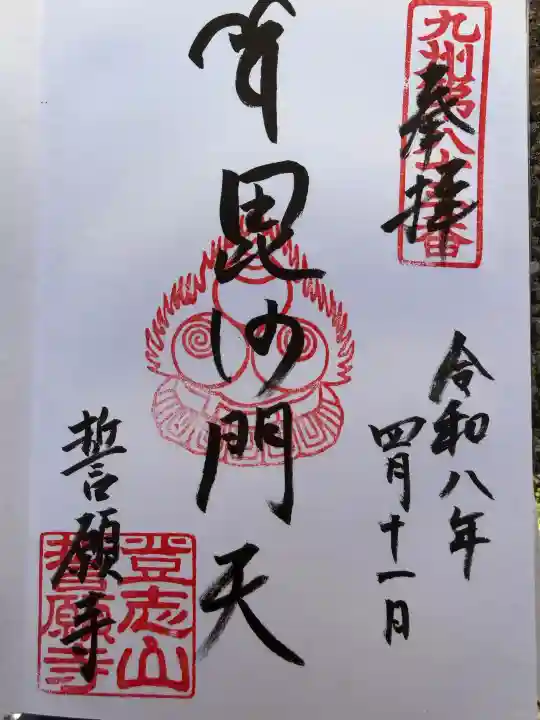 九州第八十三番
奉拝
令和八年
四月十一日
毘沙門天
誓願寺
登志山
誓願寺